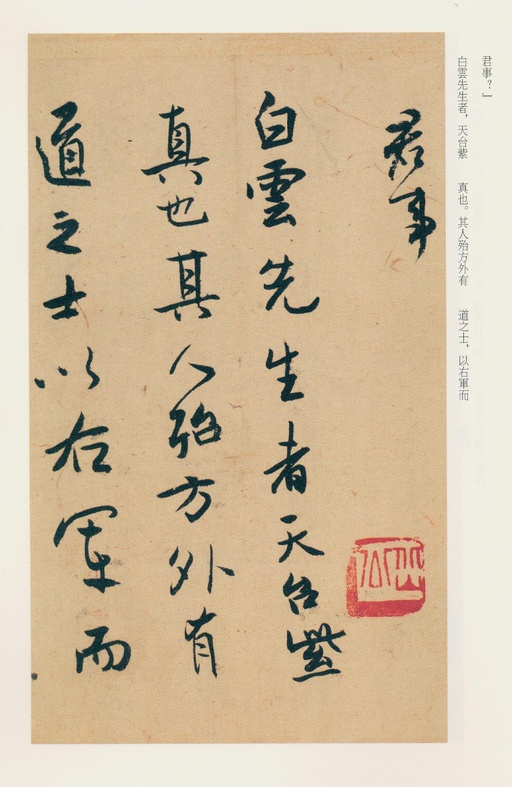 君事？」
白雲先生者，天台紫　真也。其人殆方外有　道之士，以右軍而
君事
白雲先生者天台紫
真也其人殆方外有
道之士以右軍而